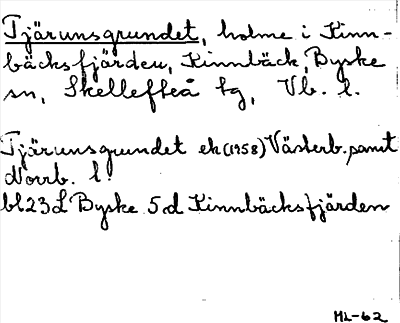 Tjärunsgrundet, holme i Kinn-
bäcksfjärden, Kinnbäck, Byske
sn, Skellefteå tg, Vb. l.
Tjärunsgrundet ek (1958) Västerb. samt
Norrb. l.
bl 23 L Byske 5 d Kinnbäcksfjärden
ML-62